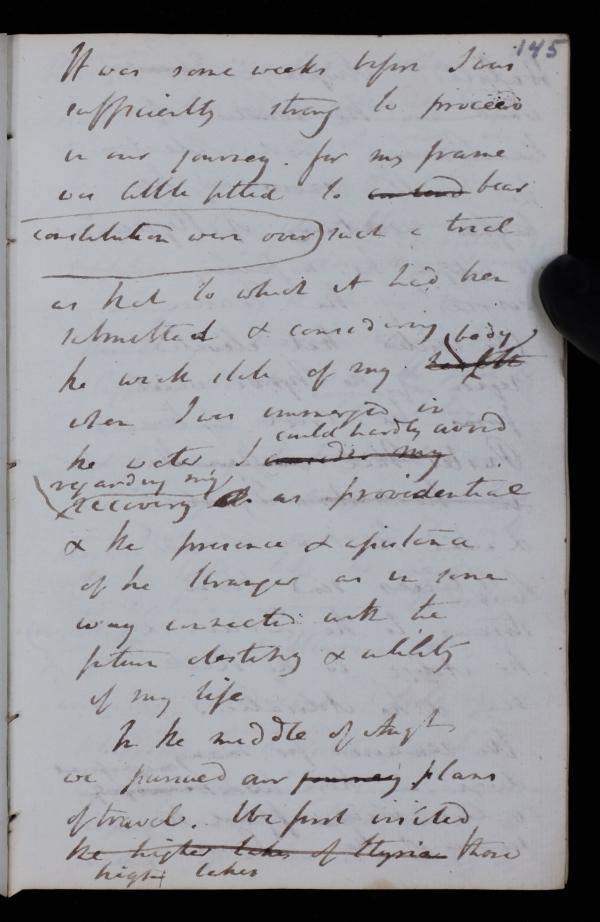 145
It was some weeks before I was
sufficiently strong to proceed
in our journey. for my frame
was little fitted to contend bear
constitution were over) such a trial
as that to which it had been
submitted & considering
body
the weak state of my health
when I was immerged in
could hardly avoid
the water I consider my
regarding my
recovery as providential
& the presence & assistance
of the stranger as in some
way connected with the
future destiny & utility
of my life
In the middle of Augt
we pursued our journey plans
of travel. We first visited
the higher lakes of Illyria those
high lakes